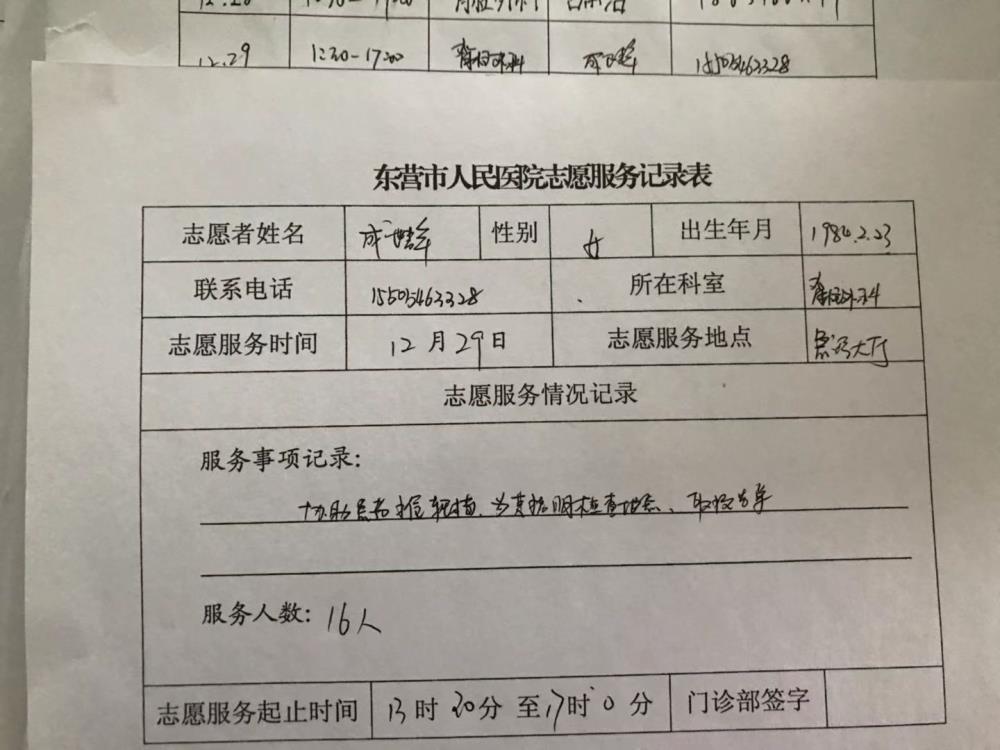 12.29 13:30-17:00 脊柱外科 15503463328
东营市人民医院志愿服务记录表
志愿者姓名 性别 女 出生年月 1984.2.23
联系电话 15503463328 所在科室 脊柱外科
志愿服务时间 12月29日 志愿服务地点 大厅
志愿服务情况记录
服务事项记录:
协助患者推轮椅、为其指明检查地点、取报告单
服务人数: 16人
志愿服务起止时间 13时30分 至17时0分 门诊部签字